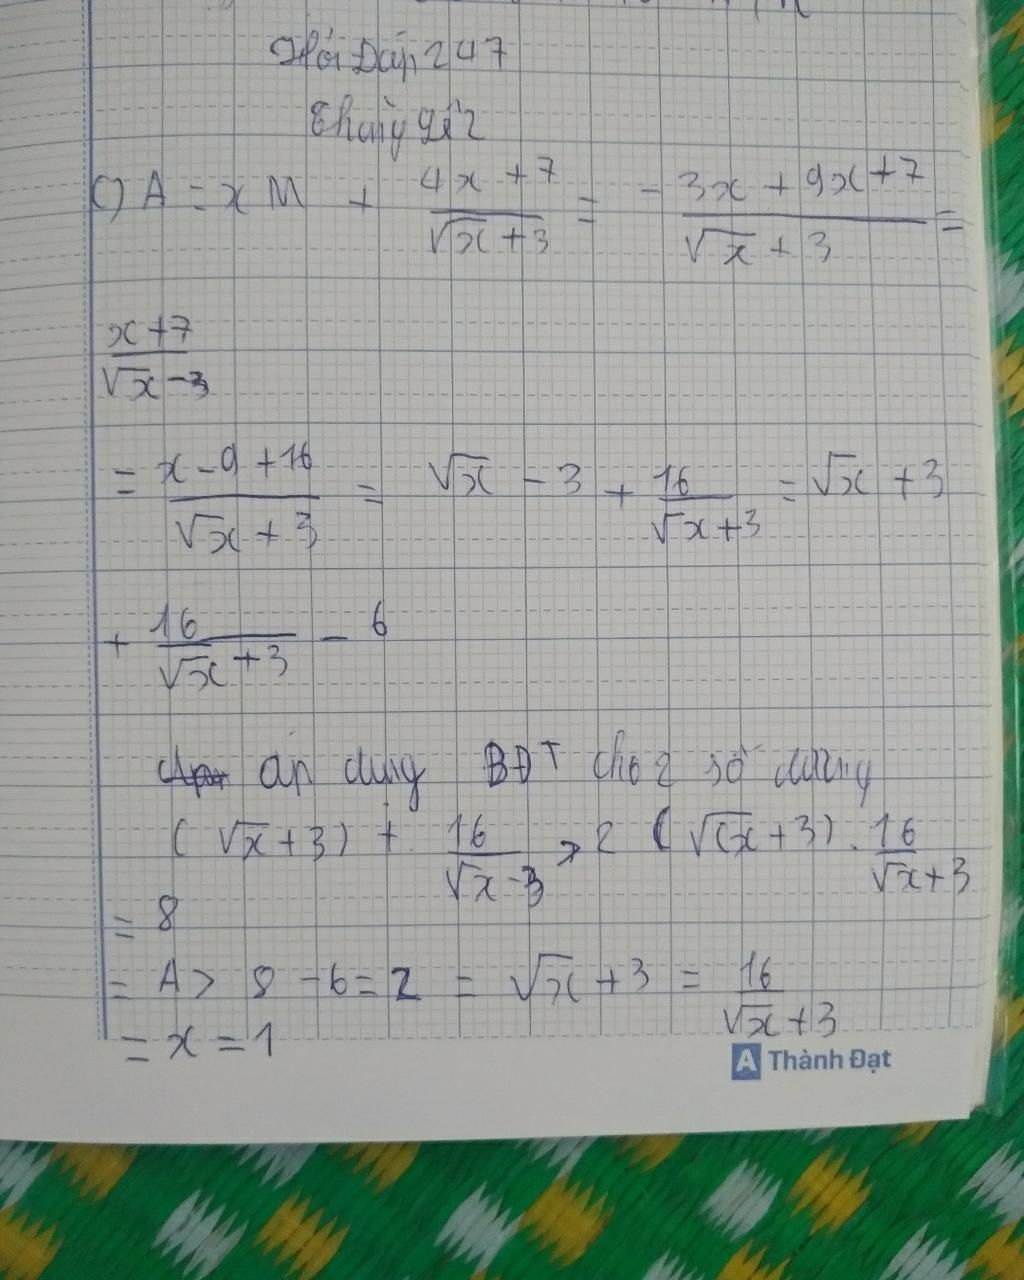 Hỏi Đáp 247
Thuỳ gửi
C) A = x M + \frac{4x + 7}{\sqrt{x} + 3} = \frac{-3x + 9x + 7}{\sqrt{x} + 3} =
\frac{x + 7}{\sqrt{x} - 3}
= \frac{x - 9 + 16}{\sqrt{x} + 3} = \sqrt{x} - 3 + \frac{16}{\sqrt{x} + 3} = \sqrt{x} + 3
+ \frac{16}{\sqrt{x} + 3} - 6
áp dụng BĐT cho 2 số dương
(\sqrt{x} + 3) + \frac{16}{\sqrt{x} - 3} > 2 (\sqrt{x} + 3) . \frac{16}{\sqrt{x} + 3}
= 8
= A > 8 - 6 = 2 = \sqrt{x} + 3 = \frac{16}{\sqrt{x} + 3}
= x = 1
A Thành Đạt